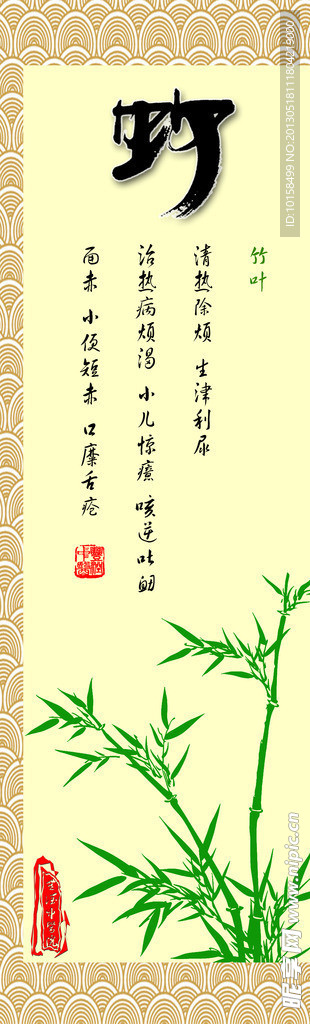 竹叶
清热除烦 生津利尿
治热病烦渴 小儿惊痫 咳逆吐衄
面赤 小便短赤 口糜舌疮
ID:10158499 NO:20130518111804219000
昵享网 www.nipic.cn